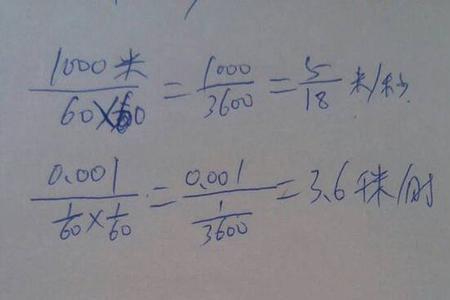 1000米/60×60 = 1000/3600 = 5/18 米/秒
0.001/(1/60×1/60) = 0.001/(1/3600) = 3.6千米/时